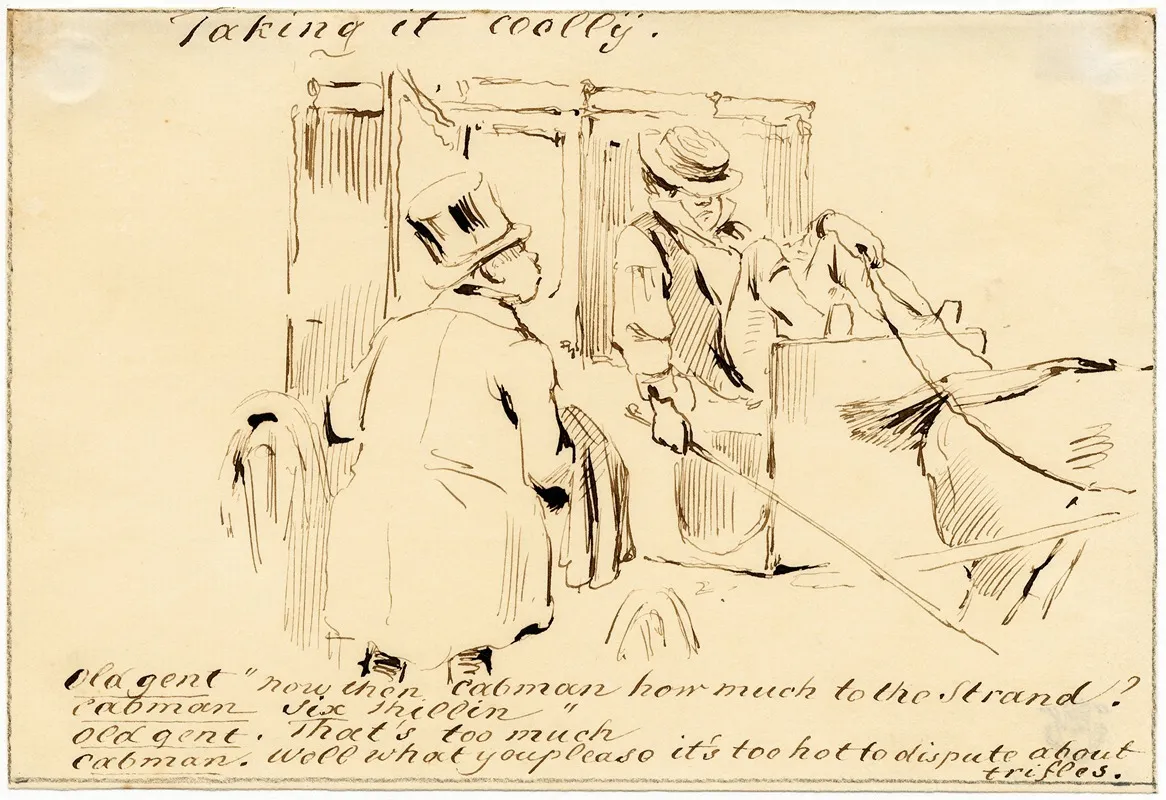 Taking it coolly.
Old gent "now then cabman how much to the Strand?
cabman six shillin"
old gent. That's too much
cabman. Well what you please it's too hot to dispute about
trifles.